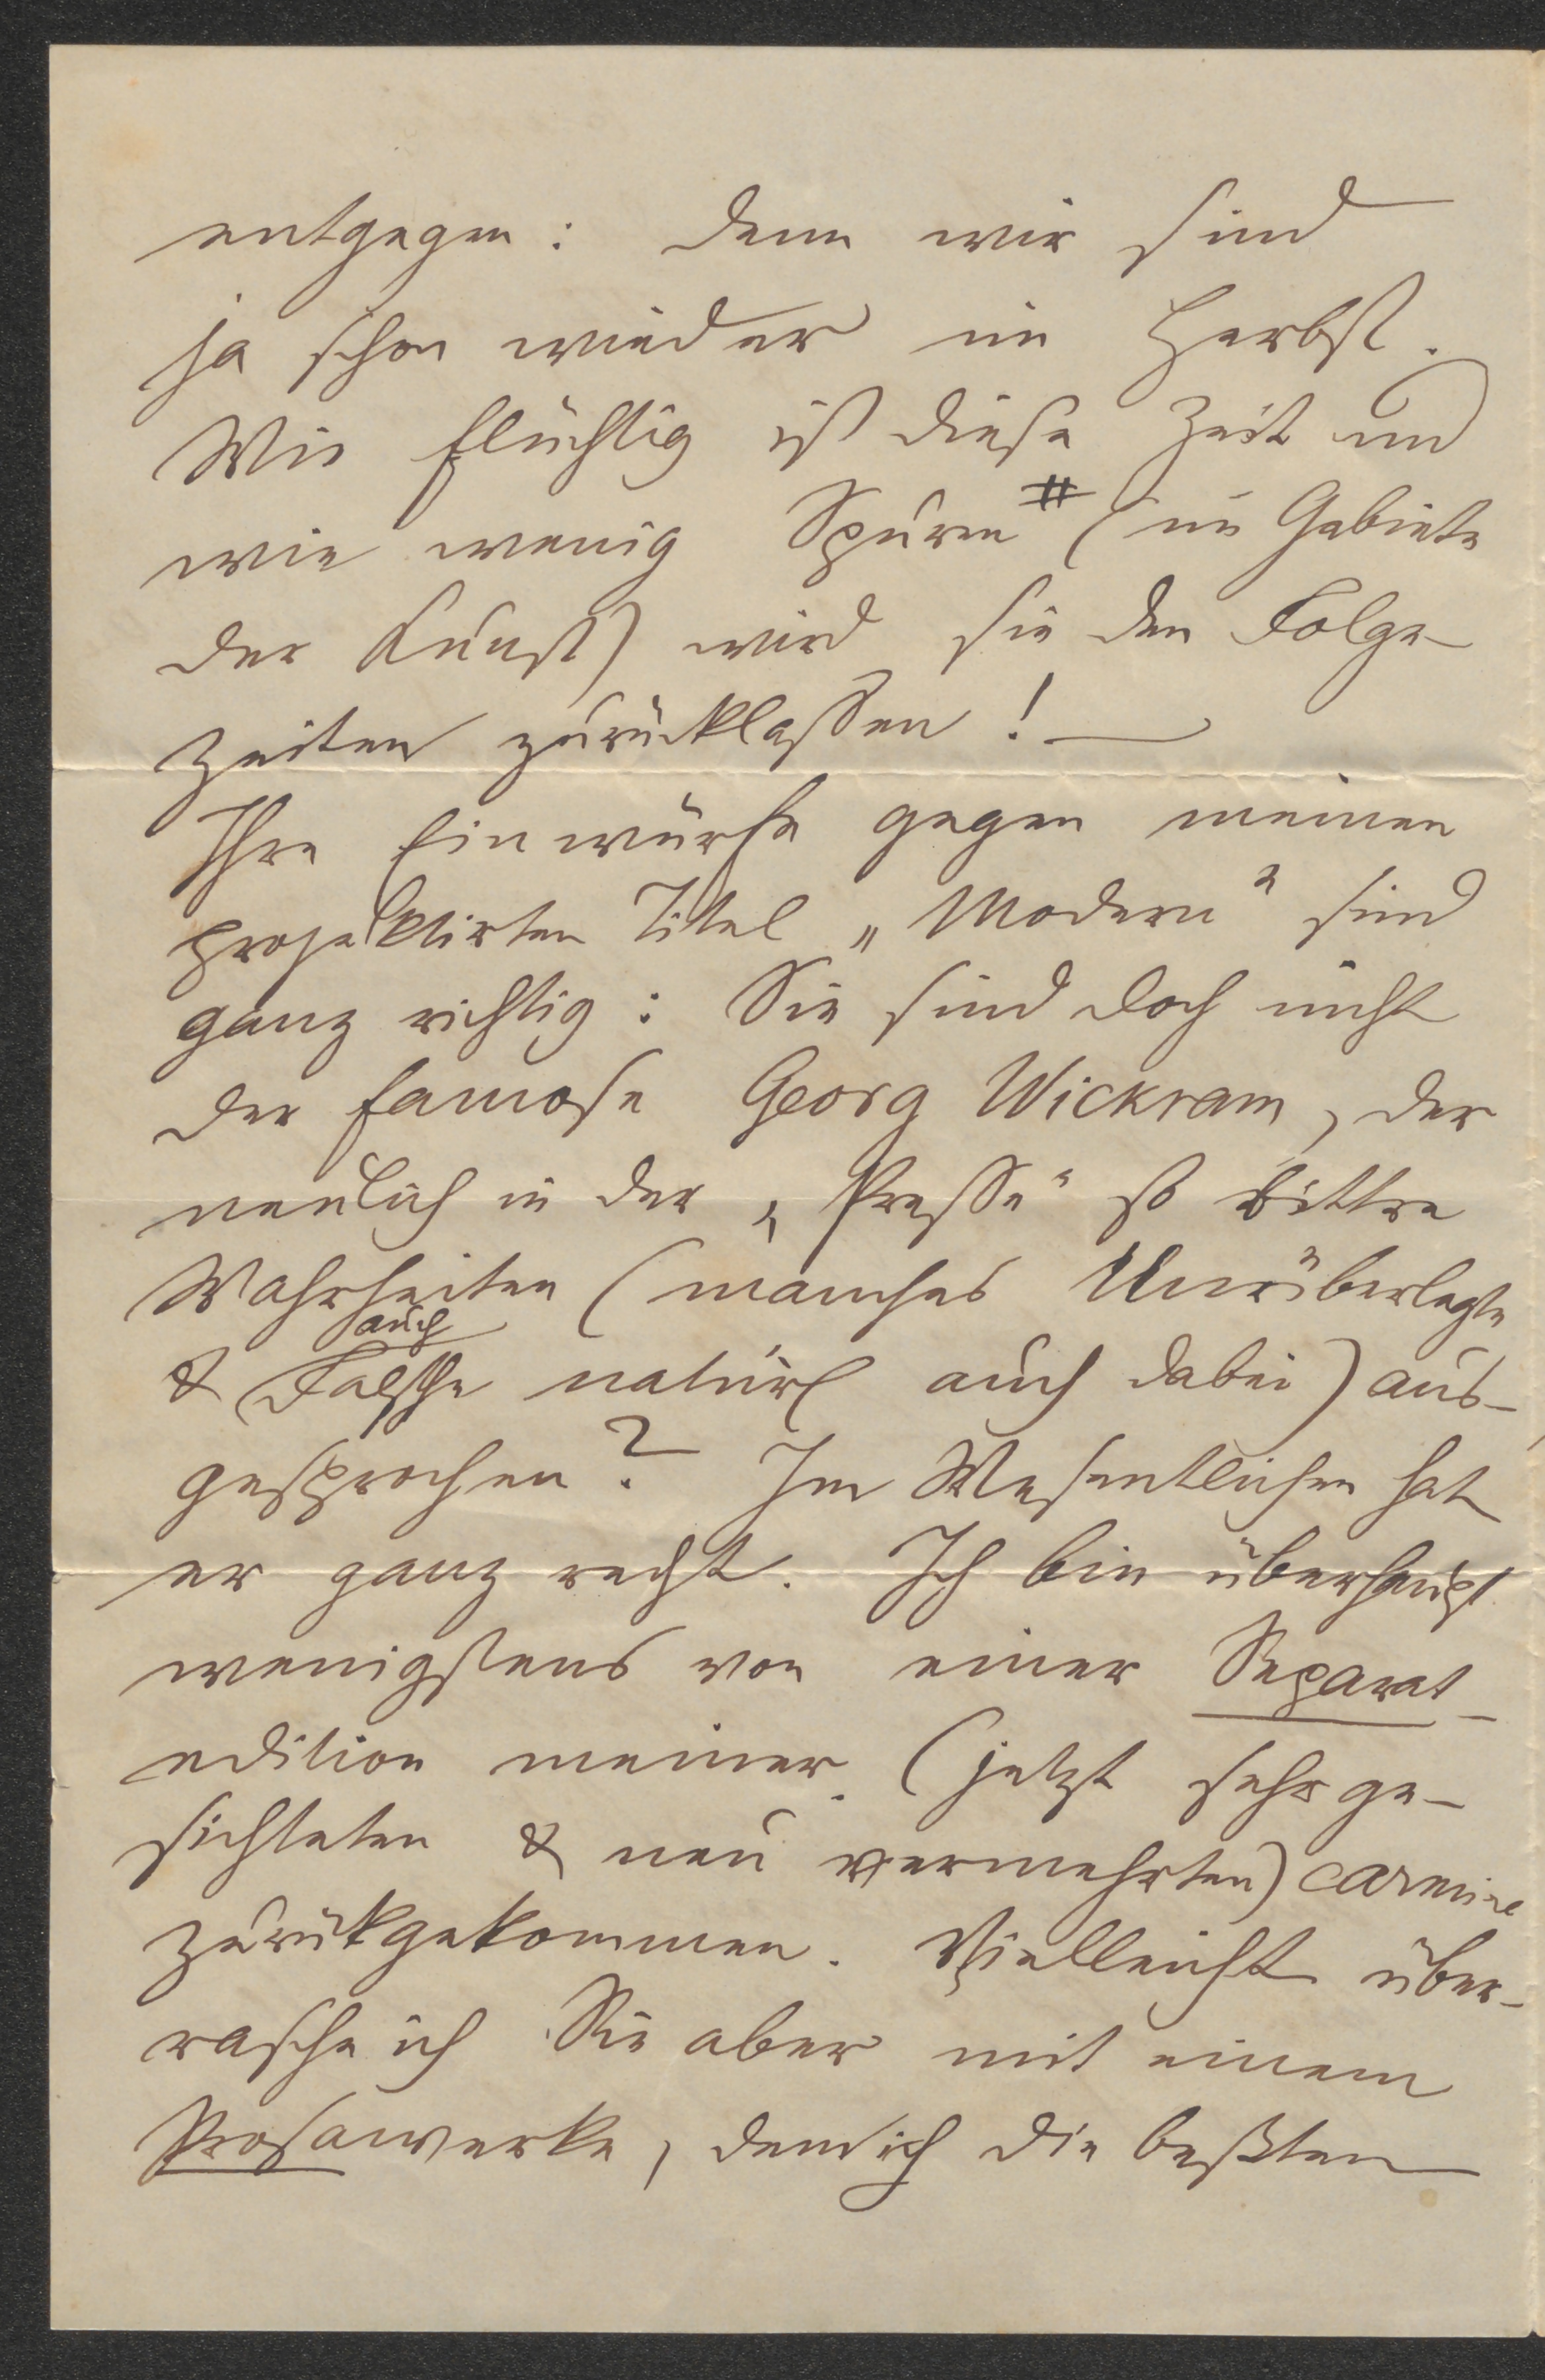 entgegen: denn wir sind
ja schon wieder im Herbst.
Wie flüchtig ist diese Zeit und
wie wenig Spuren # (im Gebiete
der Kunst) wird sie den Folge-
zeiten zurücklassen! —
Ihre Einwürfe gegen meinen
projektirten Titel „Modern“ sind
ganz richtig: Sie sind doch nicht
der famose Georg Wickram, der
neulich in der „Presse“ so bittre
Wahrheiten (manches Unüberlegte
auch
& Falsche natürl auch dabei) aus-
gesprochen? Im Wesentlichen hat
er ganz recht. Ich bin überhaupt
wenigstens von einer Separat-
edition meiner (jetzt sehr ge-
sichteten & neu vermehrten) carmina
zurückgekommen. Vielleicht über-
rasche ich Sie aber mit einem
Prosawerke, dem ich die beßten